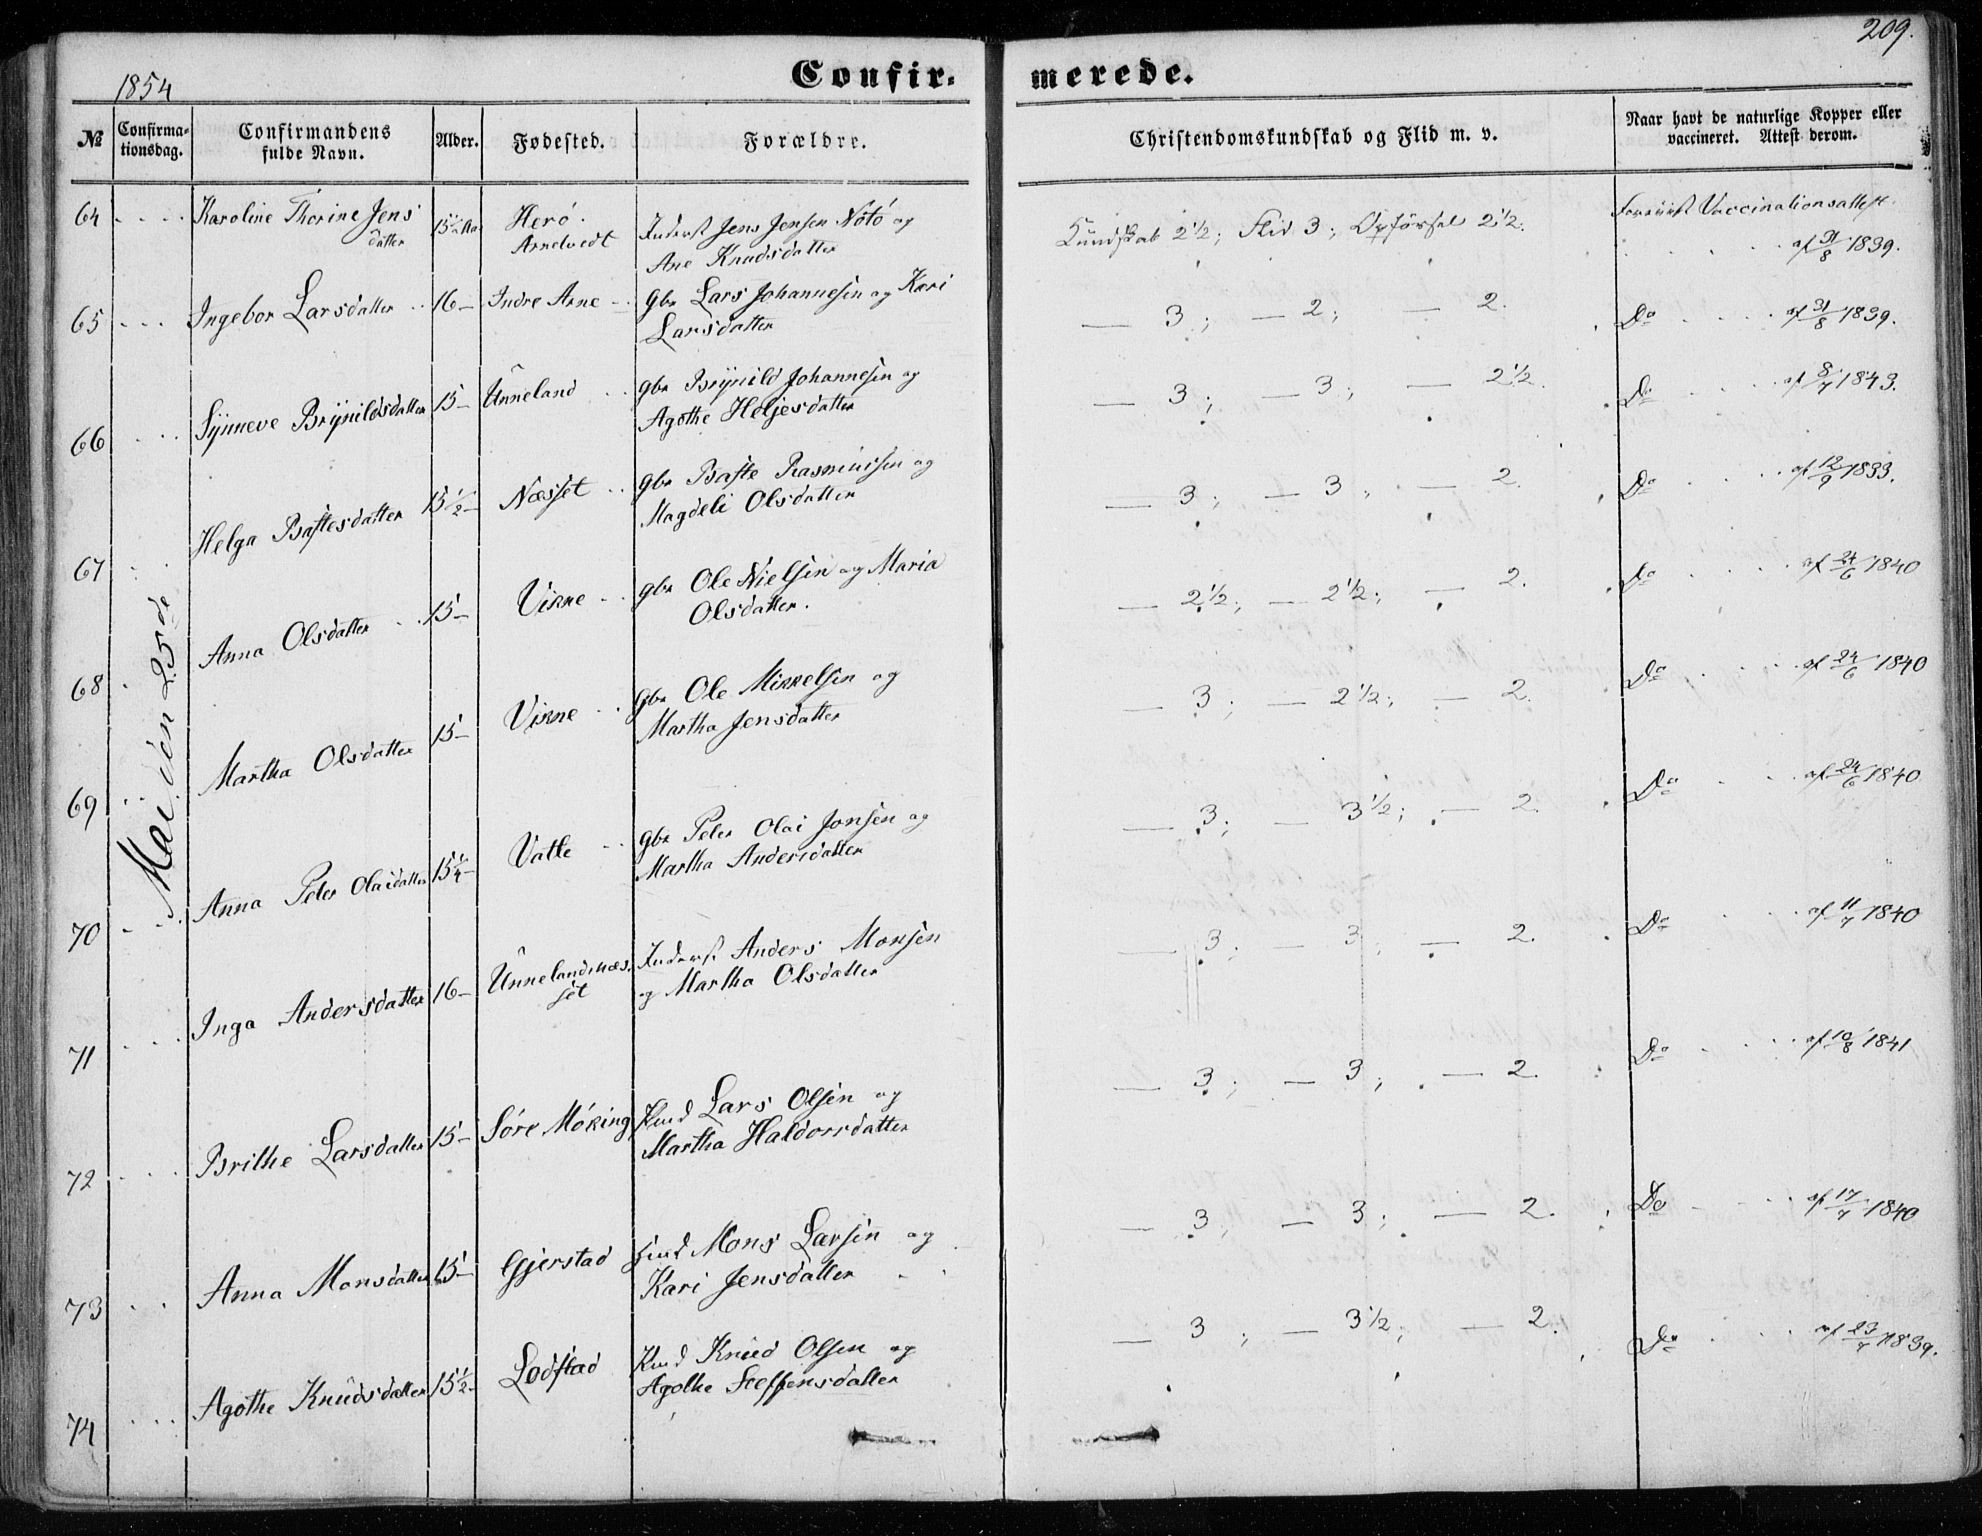 209.
1854
Confir- merede.
№
Confirma-
tionsdag.
Confirmandens
fulde Navn.
Alder.
Fødested.
Forældre.
Christendomskundskab og Flid m. v.
Naar havt de naturlige Kopper eller
vaccineret. Attest derom.
Mai den 25de
64 Karoline Thorine Jens
datter
Herö.
Arnetvedt
Jens Jensen Nötö og
Ane Knudsdatter
Kundskab 2 1/2; Flid 3; Opförsel 2 1/2.
Forevist Vaccinationsattest
af 31/8 1839.
65 Ingebor Larsdatter 16 — Indre Arne gbr Lars Johannesen og Kari
Larsdatter
— 3; — 2; — 2. Do af 31/8 1839.
66 Synneve Brynildsdatter 15 — Unneland gbr Brynild Johannesen og
Agothe Heljesdatter
— 3; — 3; — 2 1/2. Do af 8/7 1843.
67 Helga Baftesdatter 15 1/2 — Næsset gbr Bafte Rasmussen og
Magdeli Olsdatter
— 3; — 3; — 2. Do af 12/9 1833.
68 Anna Olsdatter 15 — Vikne gbr Ole Nielsen og Maria
Olsdatter.
— 2 1/2; — 2 1/2; — 2. Do af 24/6 1840
69 Martha Olsdatter 15 — Vikne gbr Ole Mikkelsen og
Martha Jensdatter
— 3; — 2 1/2; — 2. Do af 24/6 1840
70 Anna Peter Olaidatter 15 1/4 — Vatle gbr Peter Olai Jonsen og
Martha Andersdatter
— 3; — 3 1/2; — 2. Do af 24/6 1840
71 Inga Andersdatter 16 — Unnelandsnæs-
set
Inderst Anders Monsen
og Martha Olsdatter
— 3; — 3; — 2. Do af 11/7 1840
72 Brithe Larsdatter 15 — Söre Möking Hmd Lars Olsen og
Martha Haldorsdatter
— 3; — 3; — 2. Do af 10/8 1841
73 Anna Monsdatter 15 — Gjerstad Hmd Mons Larsen og
Kari Jensdatter
— 3; — 3; — 2. Do af 17/7 1840
74 Agothe Knudsdatter 15 1/2 — Lodstad Hmd Knud Olsen og
Agothe Steffensdatter
— 3; — 3 1/2; — 2. Do af 23/7 1839.